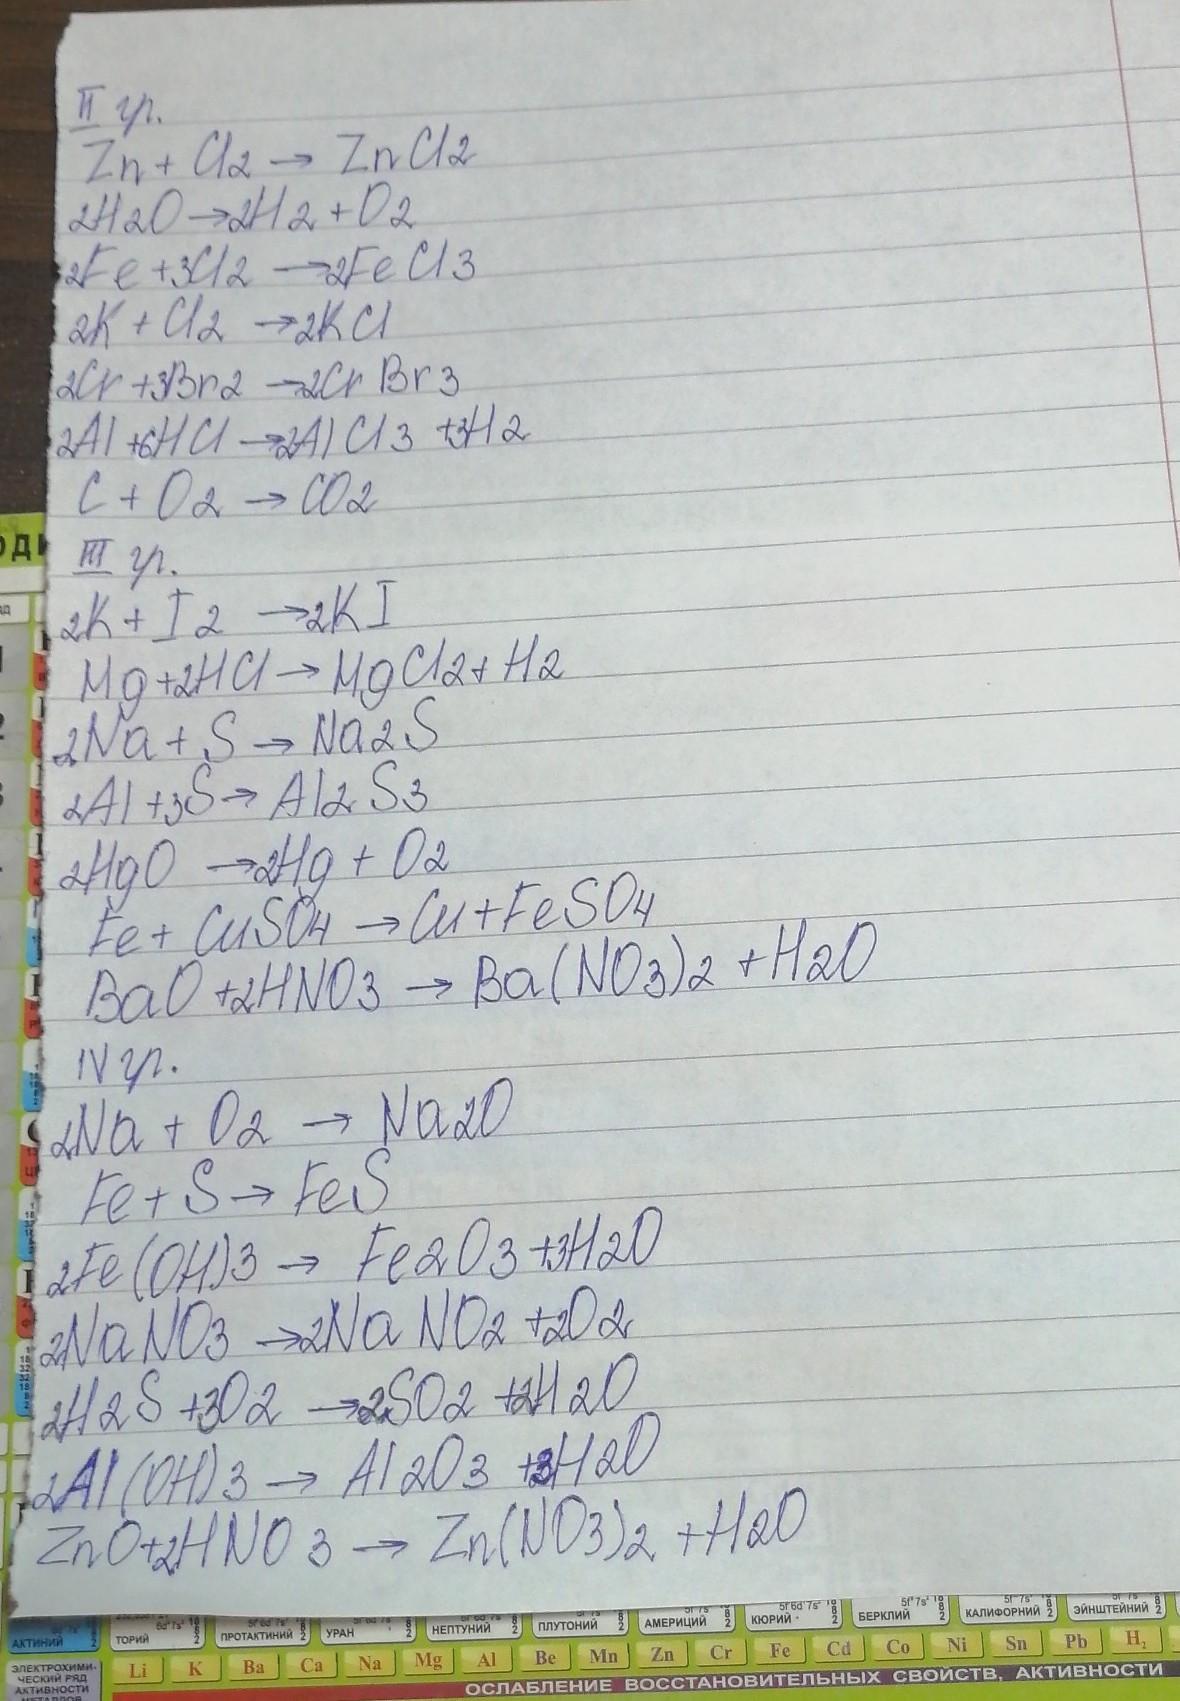 II гр.
Zn + Cl2 → ZnCl2
2H2O → 2H2 + O2
2Fe + 3Cl2 → 2FeCl3
2K + Cl2 → 2KCl
2Cr + 3Br2 → 2CrBr3
2Al + 6HCl → 2AlCl3 + 3H2
C + O2 → CO2
III гр.
2K + I2 → 2KI
Mg + 2HCl → MgCl2 + H2
2Na + S → Na2S
2Al + 3S → Al2S3
2HgO → 2Hg + O2
Fe + CuSO4 → Cu + FeSO4
BaO + 2HNO3 → Ba(NO3)2 + H2O
IV гр.
2Na + O2 → Na2O
Fe + S → FeS
2Fe(OH)3 → Fe2O3 + 3H2O
2NaNO3 → 2NaNO2 + 2O2
2H2S + 3O2 → 2SO2 + 2H2O
2Al(OH)3 → Al2O3 + 3H2O
ZnO + 2HNO3 → Zn(NO3)2 + H2O
АКТИНИЙ ТОРИЙ ПРОТАКТИНИЙ УРАН НЕПТУНИЙ ПЛУТОНИЙ АМЕРИЦИЙ КЮРИЙ БЕРКЛИЙ КАЛИФОРНИЙ ЭЙНШТЕЙНИЙ
ЭЛЕКТРОХИМИ-
ЧЕСКИЙ РЯД
АКТИВНОСТИ
МЕТАЛЛОВ
Li K Ba Ca Na Mg Al Be Mn Zn Cr Fe Cd Co Ni Sn Pb H2
ОСЛАБЛЕНИЕ ВОССТАНОВИТЕЛЬНЫХ СВОЙСТВ, АКТИВНОСТИ